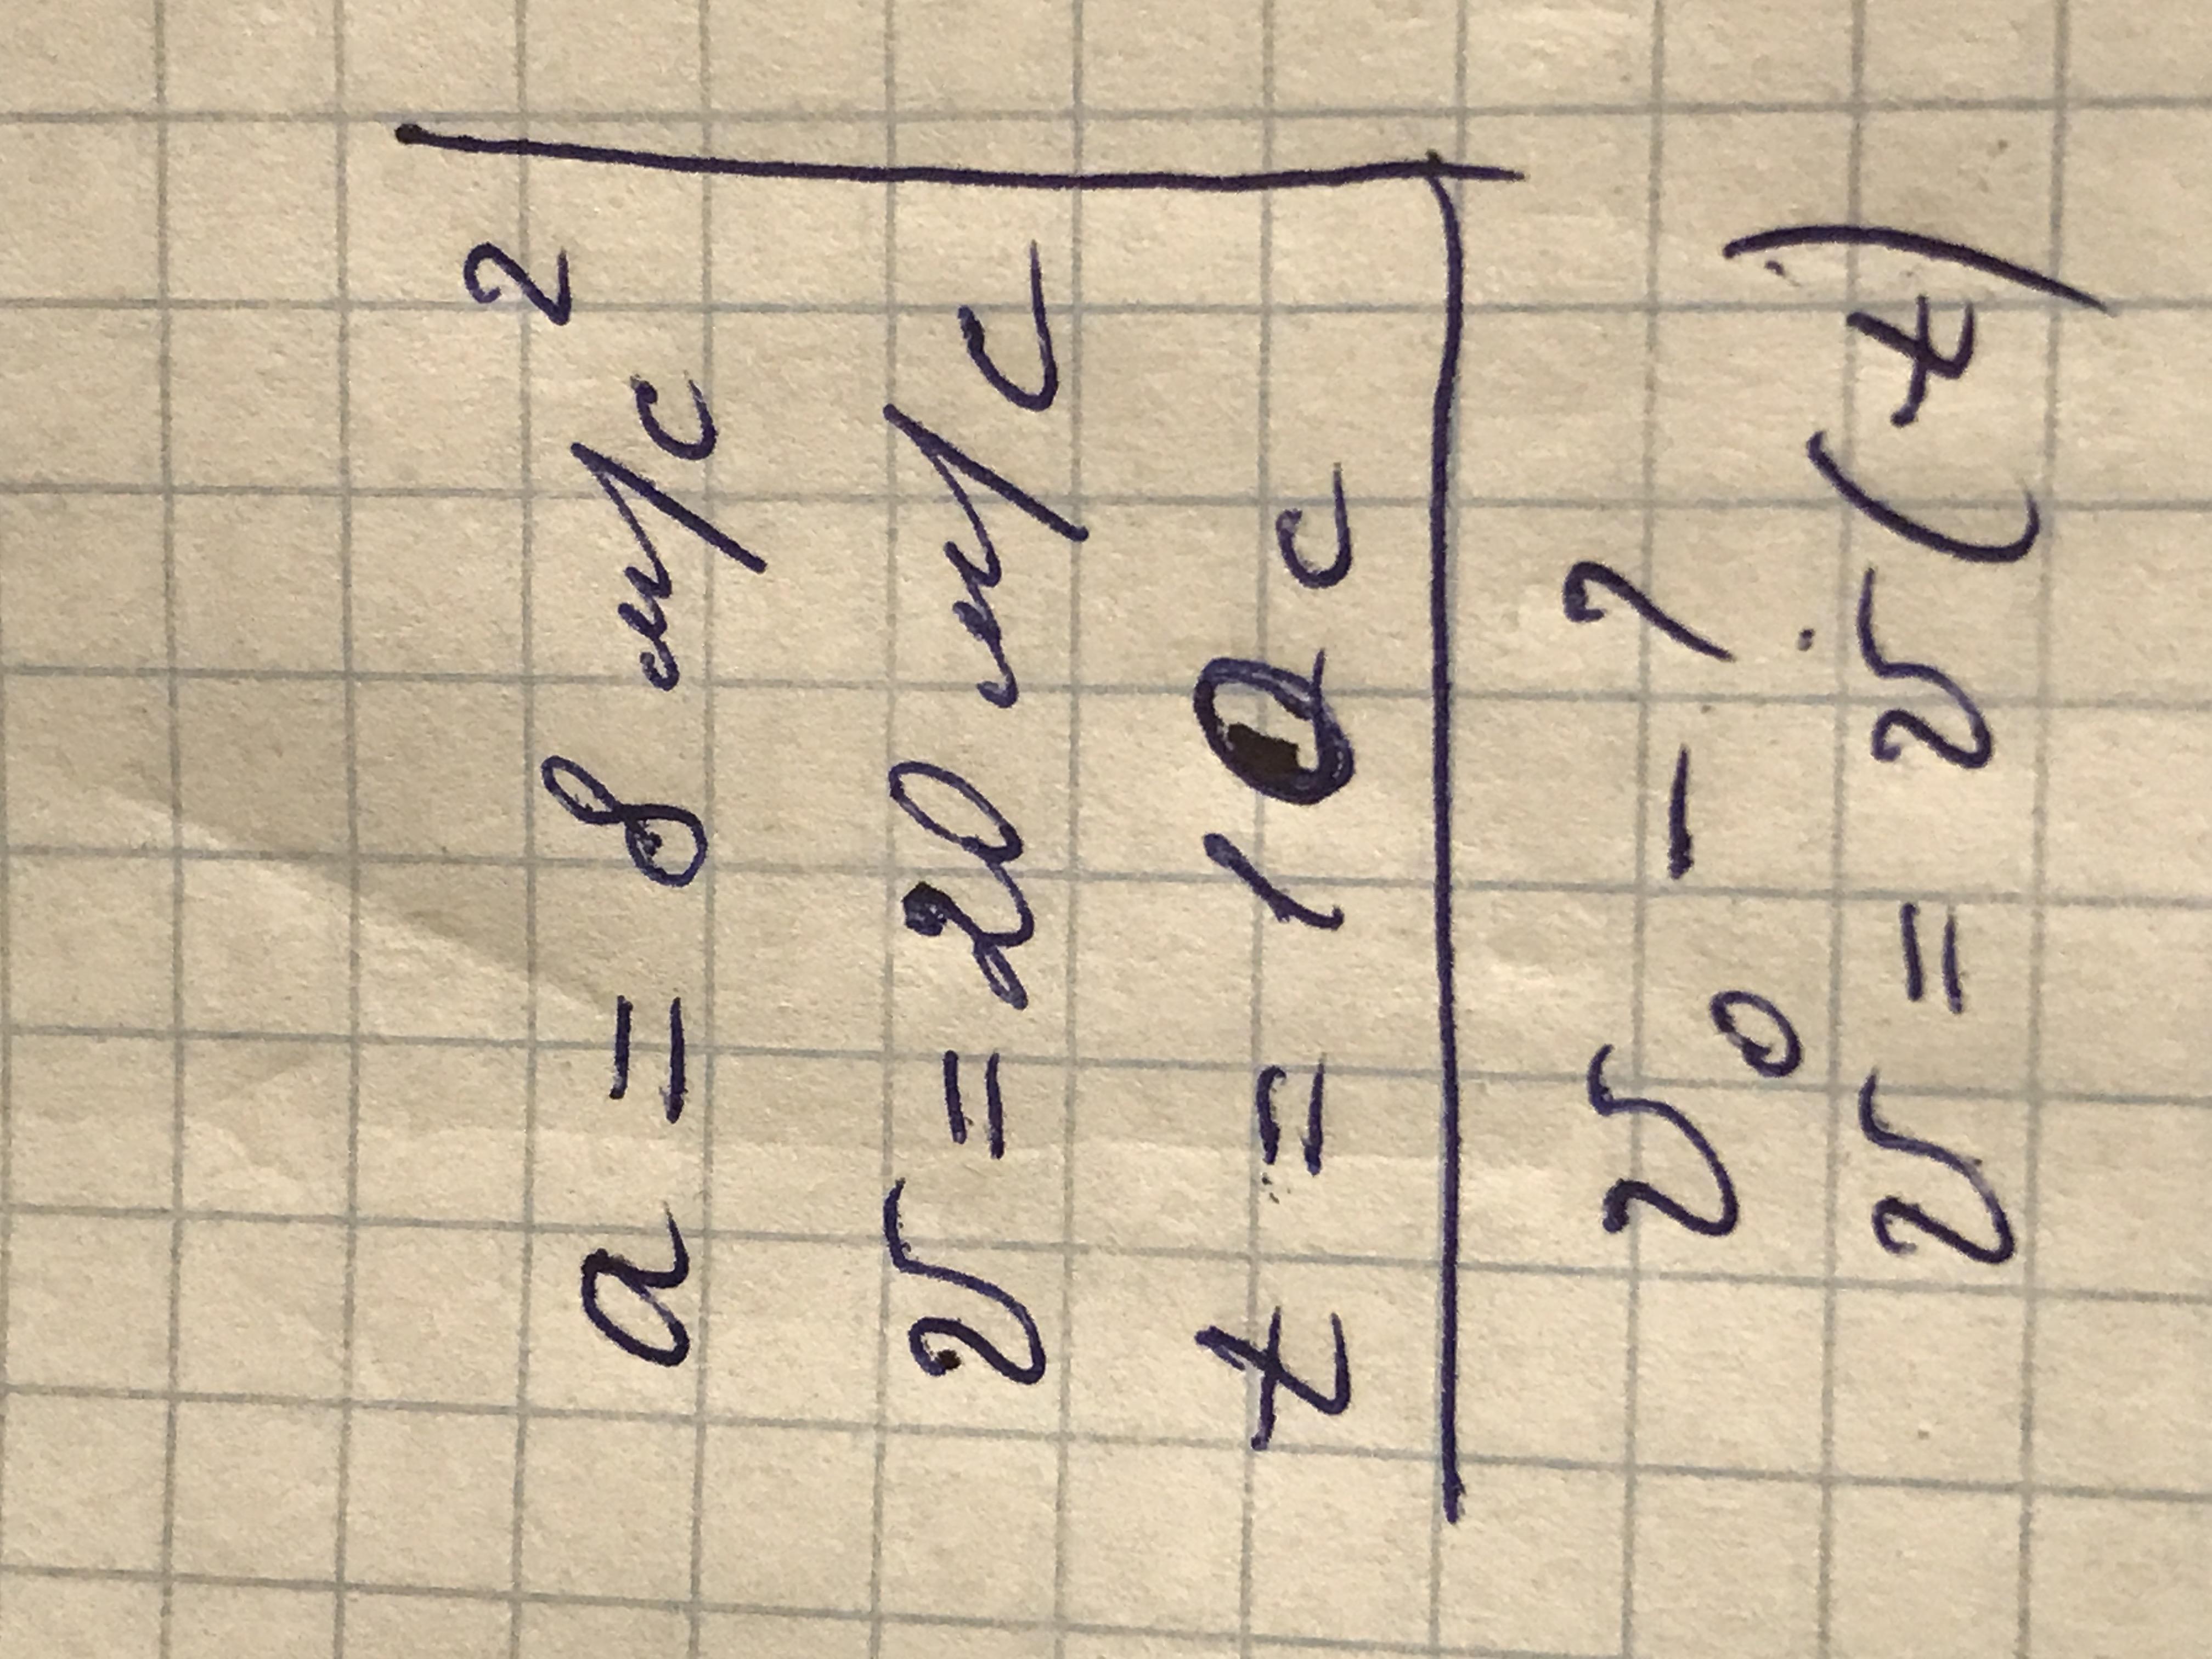 a = 8 м/с²
v = 20 м/с
t = 10 с
v₀ - ?
v = v(t)